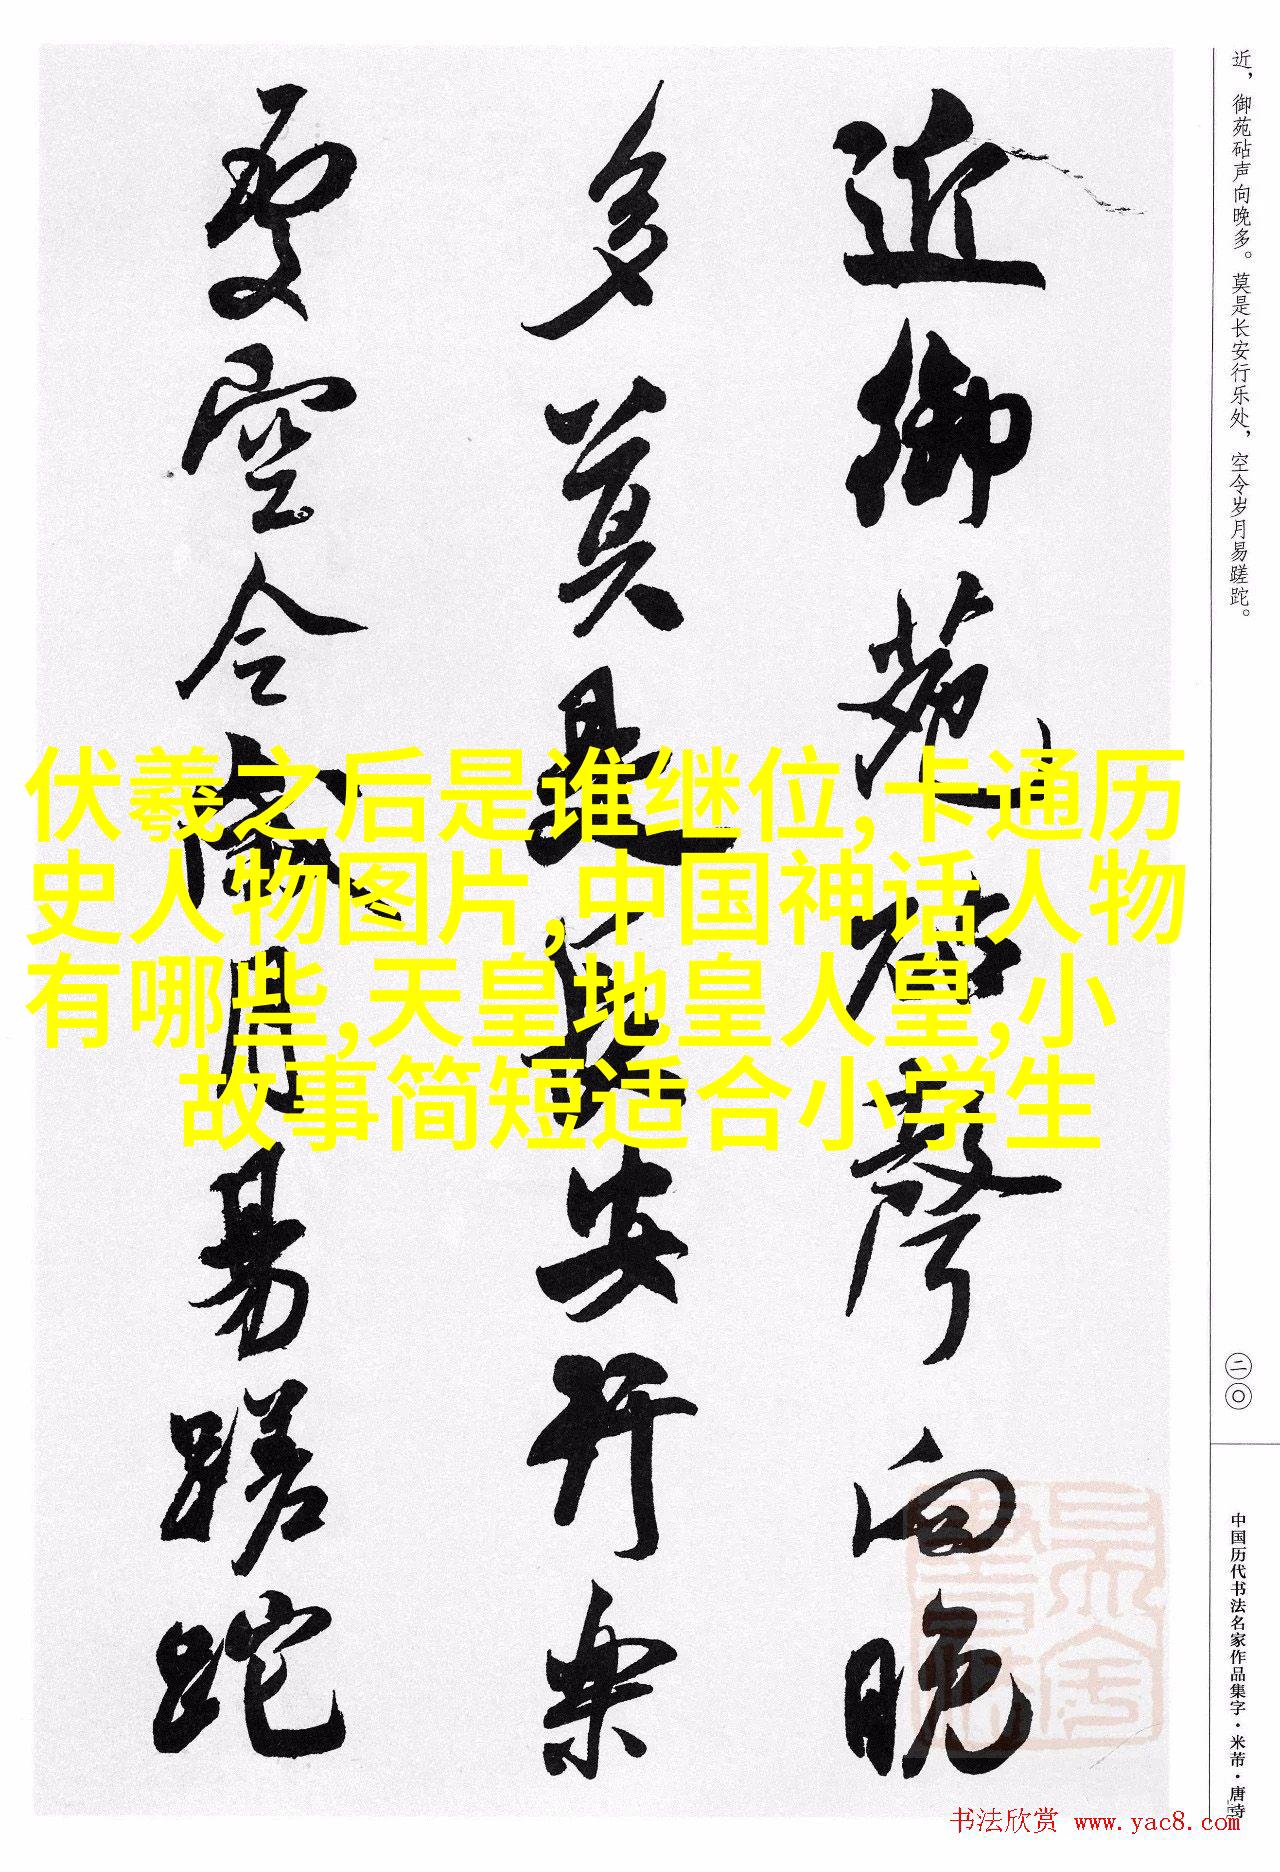 近，御苑砧声向晚多。莫是长安行乐处，空令岁月易蹉跎。
近御苑砧声向晚
多莫是长安行乐
处空令岁月易蹉跎
伏羲之后是谁继位,卡通历
史人物图片,中国神话人物
有哪些,天皇地皇人皇,小
故事简短适合小学生
二〇
中国历代书法名家作品集字·米芾·唐诗
书法欣赏 www.yac8.com